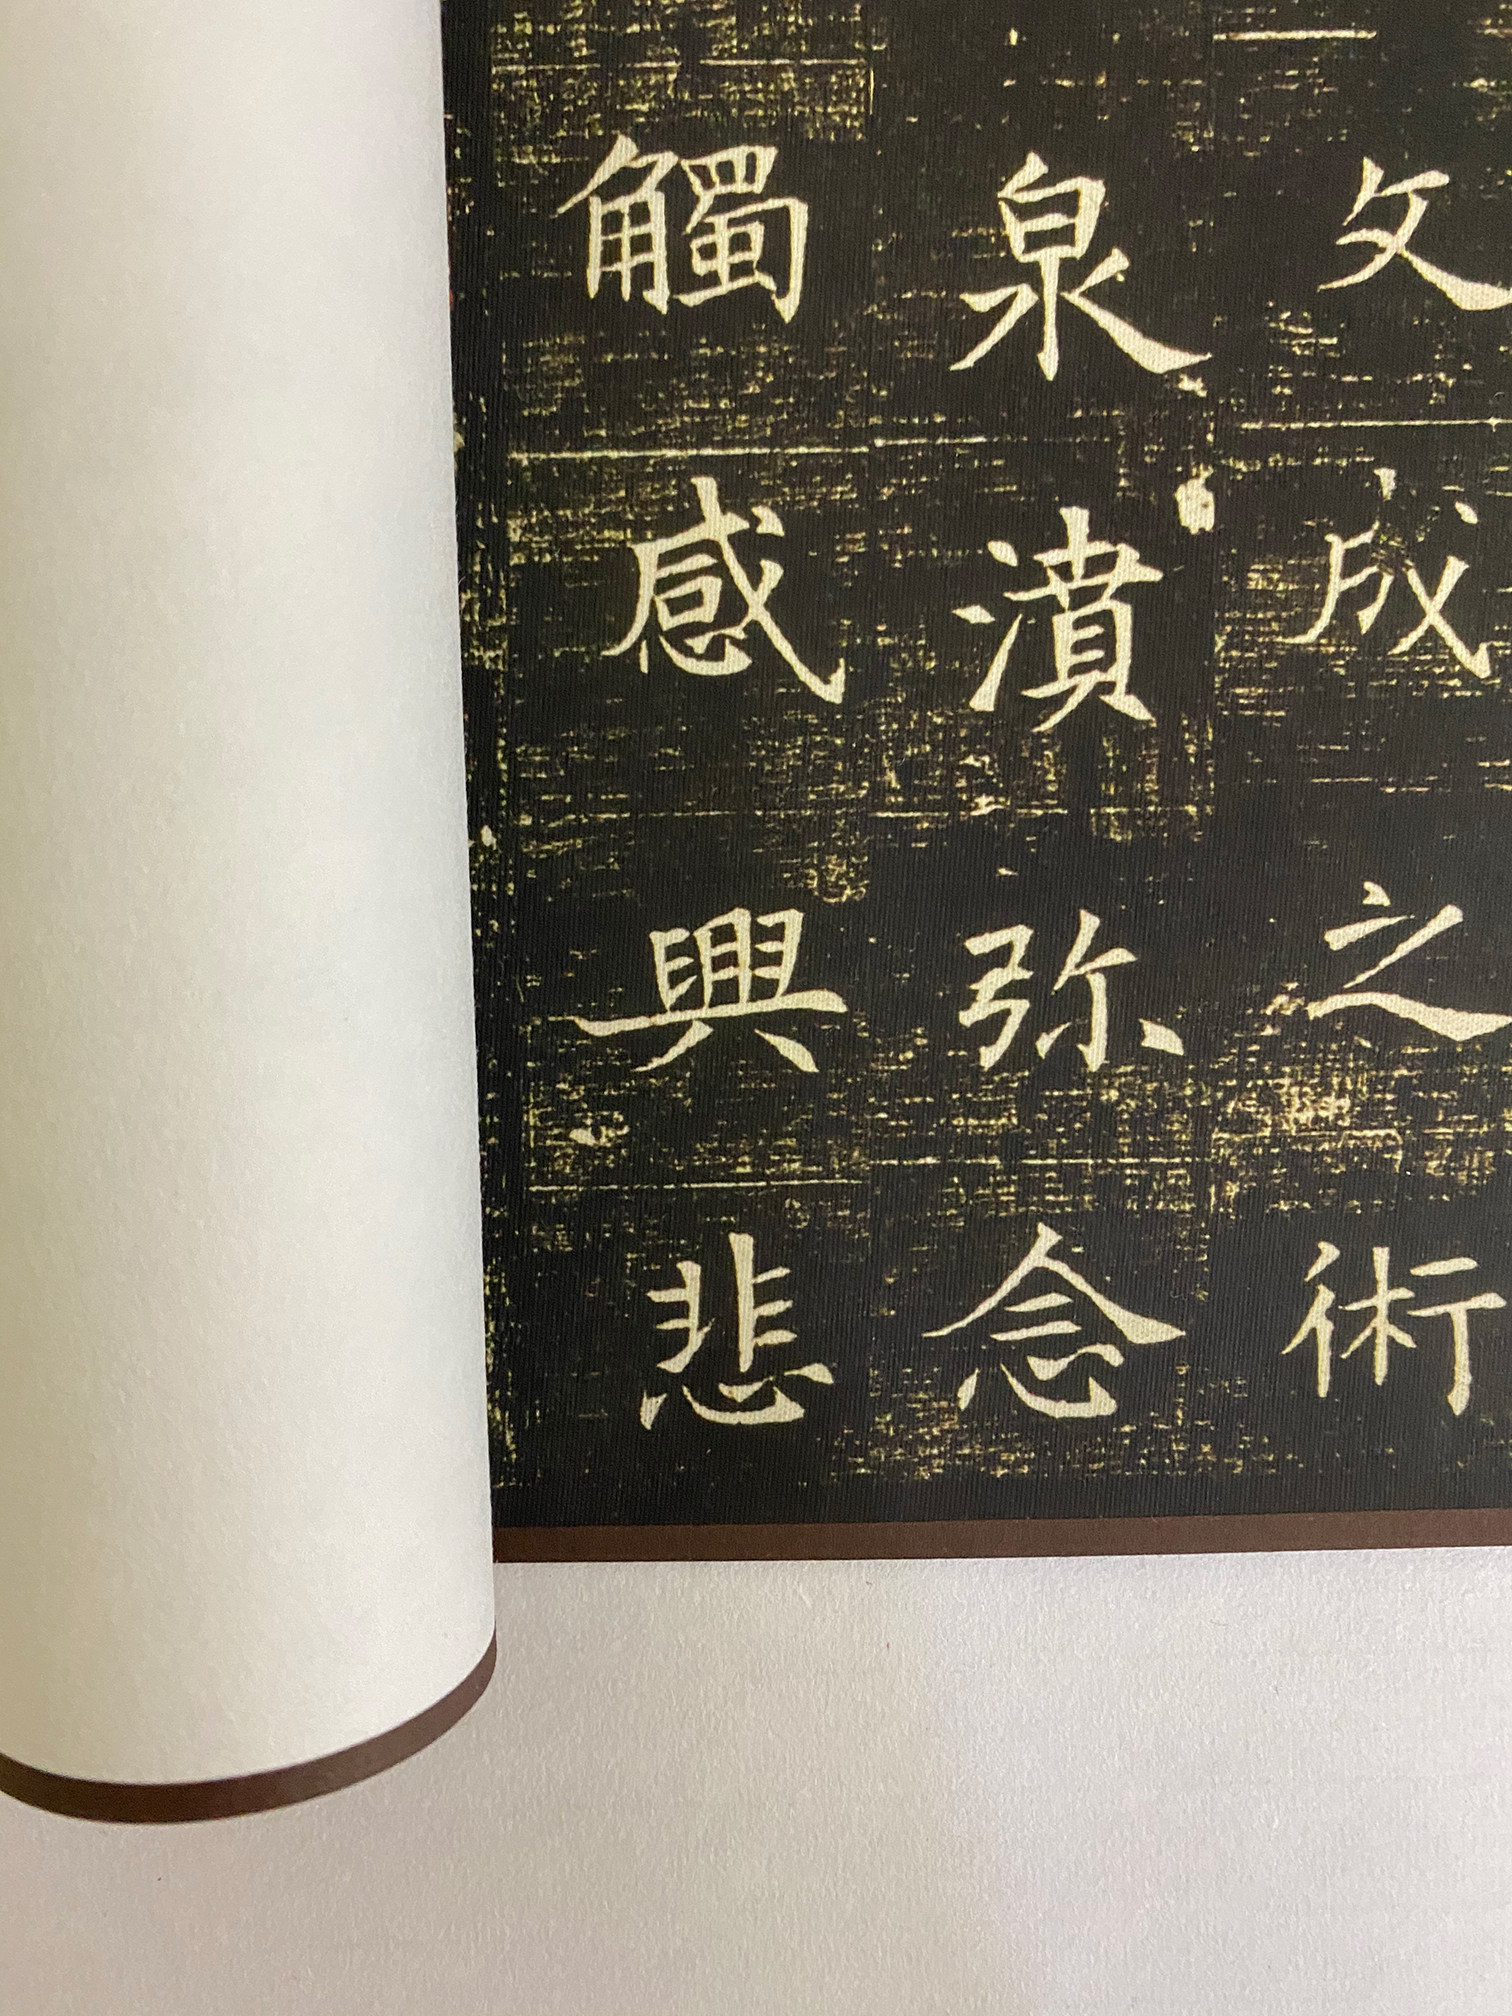 文成之術
泉濆弥念
觸感興悲